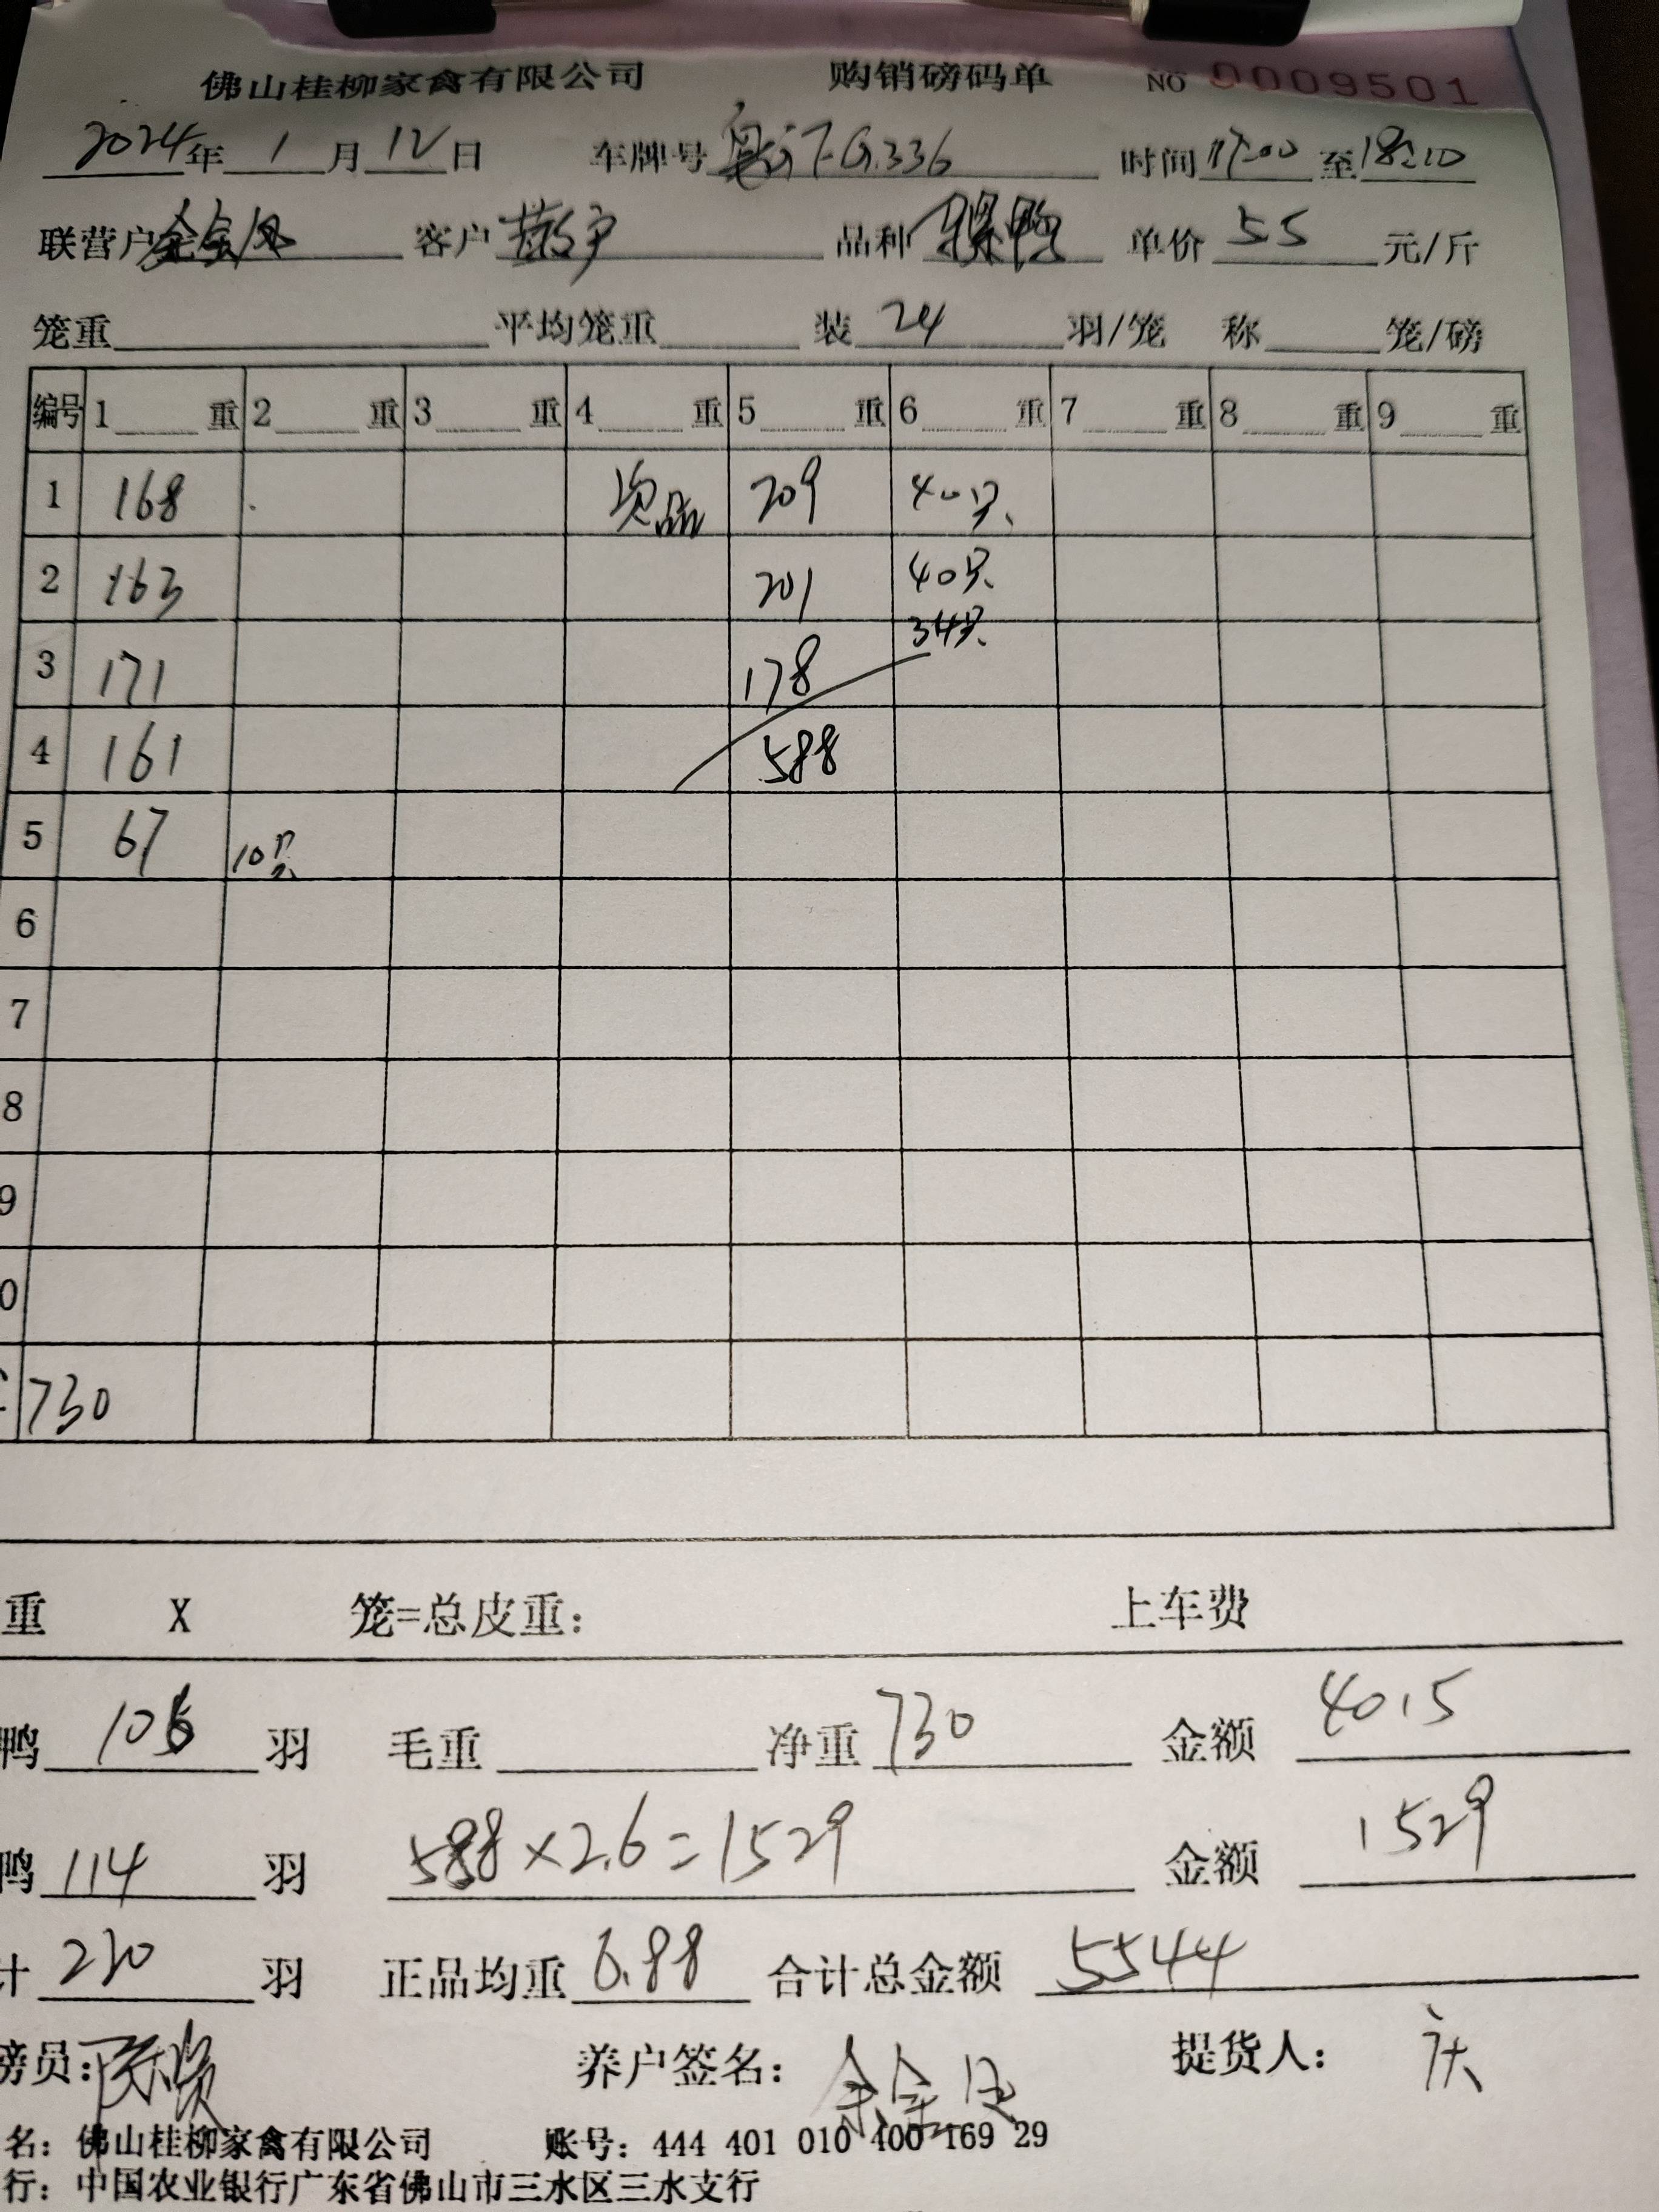 佛山桂柳家禽有限公司 购销磅码单 NO 0009501
2024年 1 月 12 日 车牌号 G.336 时间 17:00 至 18:10
联营户 客户 散户 品种 骡鸭 单价 5.5 元/斤
笼重 平均笼重 装 24 羽/笼 称 笼/磅
编号 1 重 2 重 3 重 4 重 5 重 6 重 7 重 8 重 9 重
1 168 次品 209 40只
2 163 201 40只
3 171 178 34只
4 161 588
5 67 10只
6
7
8
9
0
730
重 X 笼=总皮重: 上车费
鸭 106 羽 毛重 净重 730 金额 4015
鸭 114 羽 588×2.6=1529 金额 1529
计 220 羽 正品均重 6.88 合计总金额 5544
磅员: 养户签名: 提货人: 庆
名: 佛山桂柳家禽有限公司 账号: 444 401 010 400 169 29
行: 中国农业银行广东省佛山市三水区三水支行